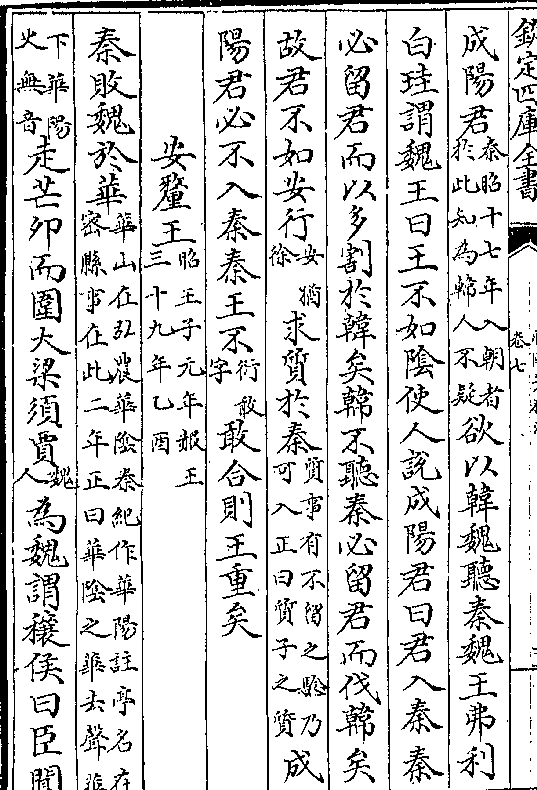 欽定四庫全書
卷七
成陽君秦昭十七年入朝者於此知為韓人不疑欲以韓魏聽秦魏王弗利
白珪謂魏王曰王不如陰使人說成陽君曰君入秦秦
必留君而以多割於韓矣韓不聽秦必留君而伐韓矣
故君不如安行安猶徐求質於秦質事有不留之驗乃可入正曰質子之質成
陽君必不入秦秦王不衍敢字敢合則王重矣
安釐王昭王子元年赧王三十九年乙酉
秦敗魏於華華山在弘農華陰秦紀作華陽註亭名在密縣事在此二年正曰華陰之華去聲華
下華陽史無音走芒卯而圍大梁須賈魏人為魏謂穰侯曰臣聞